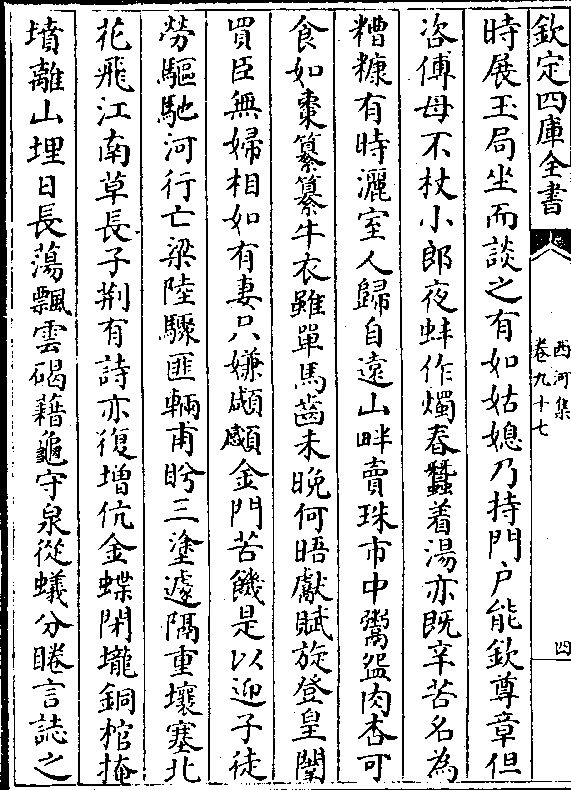 欽定四庫全書
西河集
卷九十七
四
時展玉局坐而談之有如姑媳乃持門户能欽尊章但
咨傅母不杖小郎夜蚌作燭春蠶着湯亦既辛苦名為
糟糠有時灑室人歸自遠山畔賣珠市中鬻盌肉杏可
食如棗纂纂牛衣雖單馬齒未晚何晤獻賦旋登皇闥
買臣無婦相如有妻只嫌顑顑金門苦饑是以迎子徒
勞驅馳河行亡梁陸驟匪輛甫盻三塗遽隔重壤塞北
花飛江南草長子荆有詩亦復增伉金蝶閉壠銅棺掩
墳離山埋日長蕩飄雲碣藉龜守泉從蟻分睠言誌之